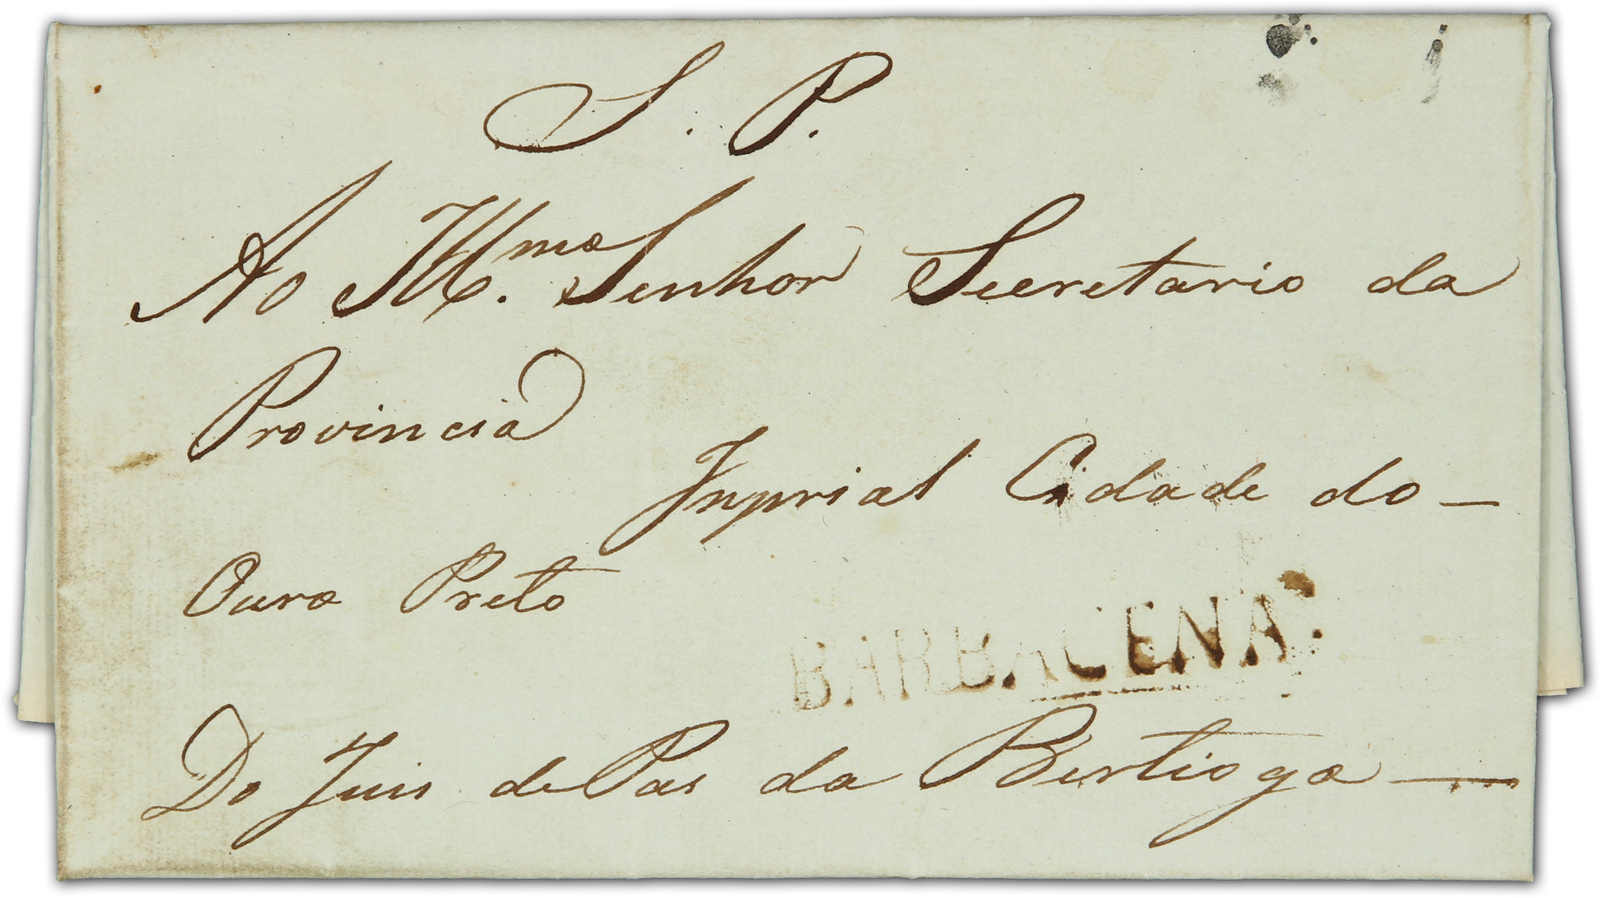 S. P.
Ao Illmo. Senhor Secretario da
Provincia
Inprial Cidade do —
Ouro Preto
BARBACENA.
Do Juis de Pas da Bertioga —